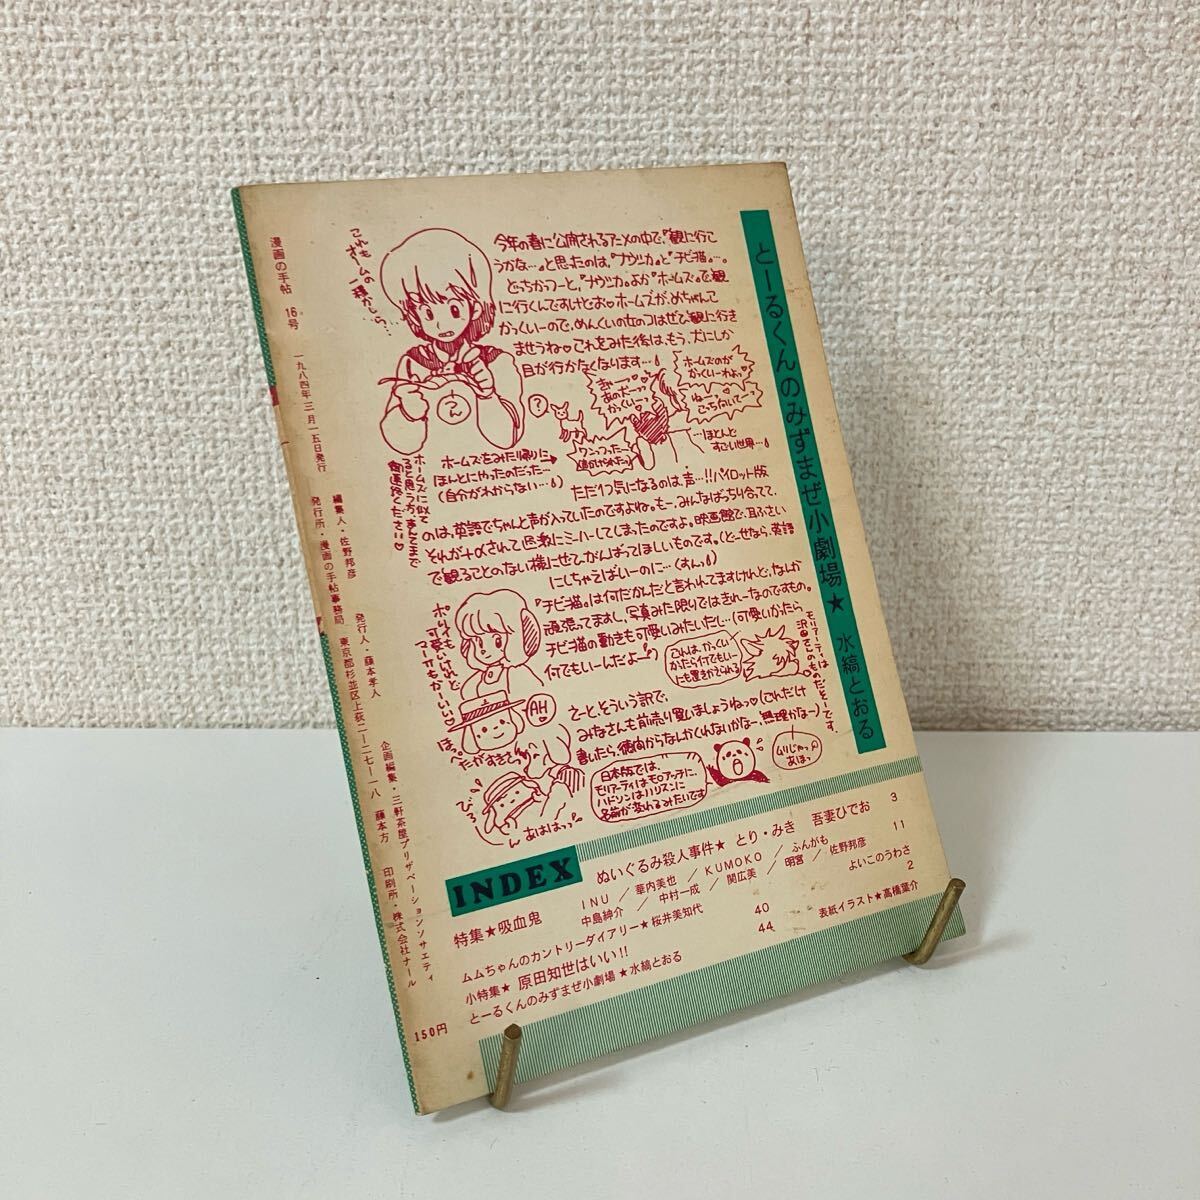 とーるくんのみずまぜ小劇場★ 水縞とおる
今年の春に公開されるアニメの中で、『観に行こ
うかな…』と思ったのは、『ナウシカ』と『チビ猫』…。
どっちかつーと、『ナウシカ』よか『ホームズ』で観
に行くんですけどお♡ホームズが、めちゃんこ
かっくいーので、めんくいの女のコはぜひ観に行き
ませうね♡これをみた後は、もう、犬にしか
目が行かなくなります…
これも
オームの
一種かしら…
つん
?
きゃーっ
あの犬ーっ
かっくいーっ
ホームズのが
かっくいーわよっ
ねーっ
こっちむいてーっ
…ほとんど
すごい世界…
ホームズをみた帰りに
ほんとにやったのだった…
(自分がわからない…)
ワンっつった…
ホームズに似て
ると思う方、
ください♡
ただ1つ気になるのは、声…!!パイロット版
のは、英語でちゃんと声が入っていたのですよね。もー、みんなばっちり合ってて、
それが+αされて急激にミーハーしてしまったのですよ。映画館で、耳ふさい
で観ることのない様にぜひがんばってほしいものです。(どーせなら、英語
にしちゃえばいーのに…(すん))
『チビ猫』は何だかんだと言われてますけれど、なしか
頑張ってますし、写真みた限りではきれーなのですもの。
チビ猫の動きも可愛いみたいだし…(可愛いかたら
何でもいーんだよー)
ポリィも
可愛いけれど
マーサもかーいい♡
これは、かっくい
かたら何でもいー
にも置きかえられる
モリアーティは
沢田さんのものだそーです。
えーと、そういう訳で、
みなさんも前売り買いましょうねっ♡(これだけ
書いたら、徳間からなんかくれないかなー、無理かなー)
AH
ほっぺ
たかすきてっ
びろーん
あははっっ
日本版では、
モリアーティはモロアッチに、
ハドソンはハリスンに
名前が変わるみたいです
ムリじゃっ
あほっ
INDEX
ぬいぐるみ殺人事件★ とり・みき 吾妻ひでお 3
特集★吸血鬼 11
INU／華内美也／KUMOKO／ふんがも
中島紳介／中村一成／関広美／明宮／佐野邦彦
よいこのうわさ 2
ムムちゃんのカントリーダイアリー★桜井美知代 40
小特集★ 原田知世はいい!! 44
表紙イラスト★高橋葉介
とーるくんのみずまぜ小劇場★水縞とおる
漫画の手帖 16号 一九八四年三月一五日発行
編集人・佐野邦彦 発行人・藤本孝人 企画編集・三軒茶屋プリザベーションソサエティ
発行所・漫画の手帖事務局 東京都杉並区上荻二ー二七ー一八 藤本方 印刷所・株式会社ナール
150円